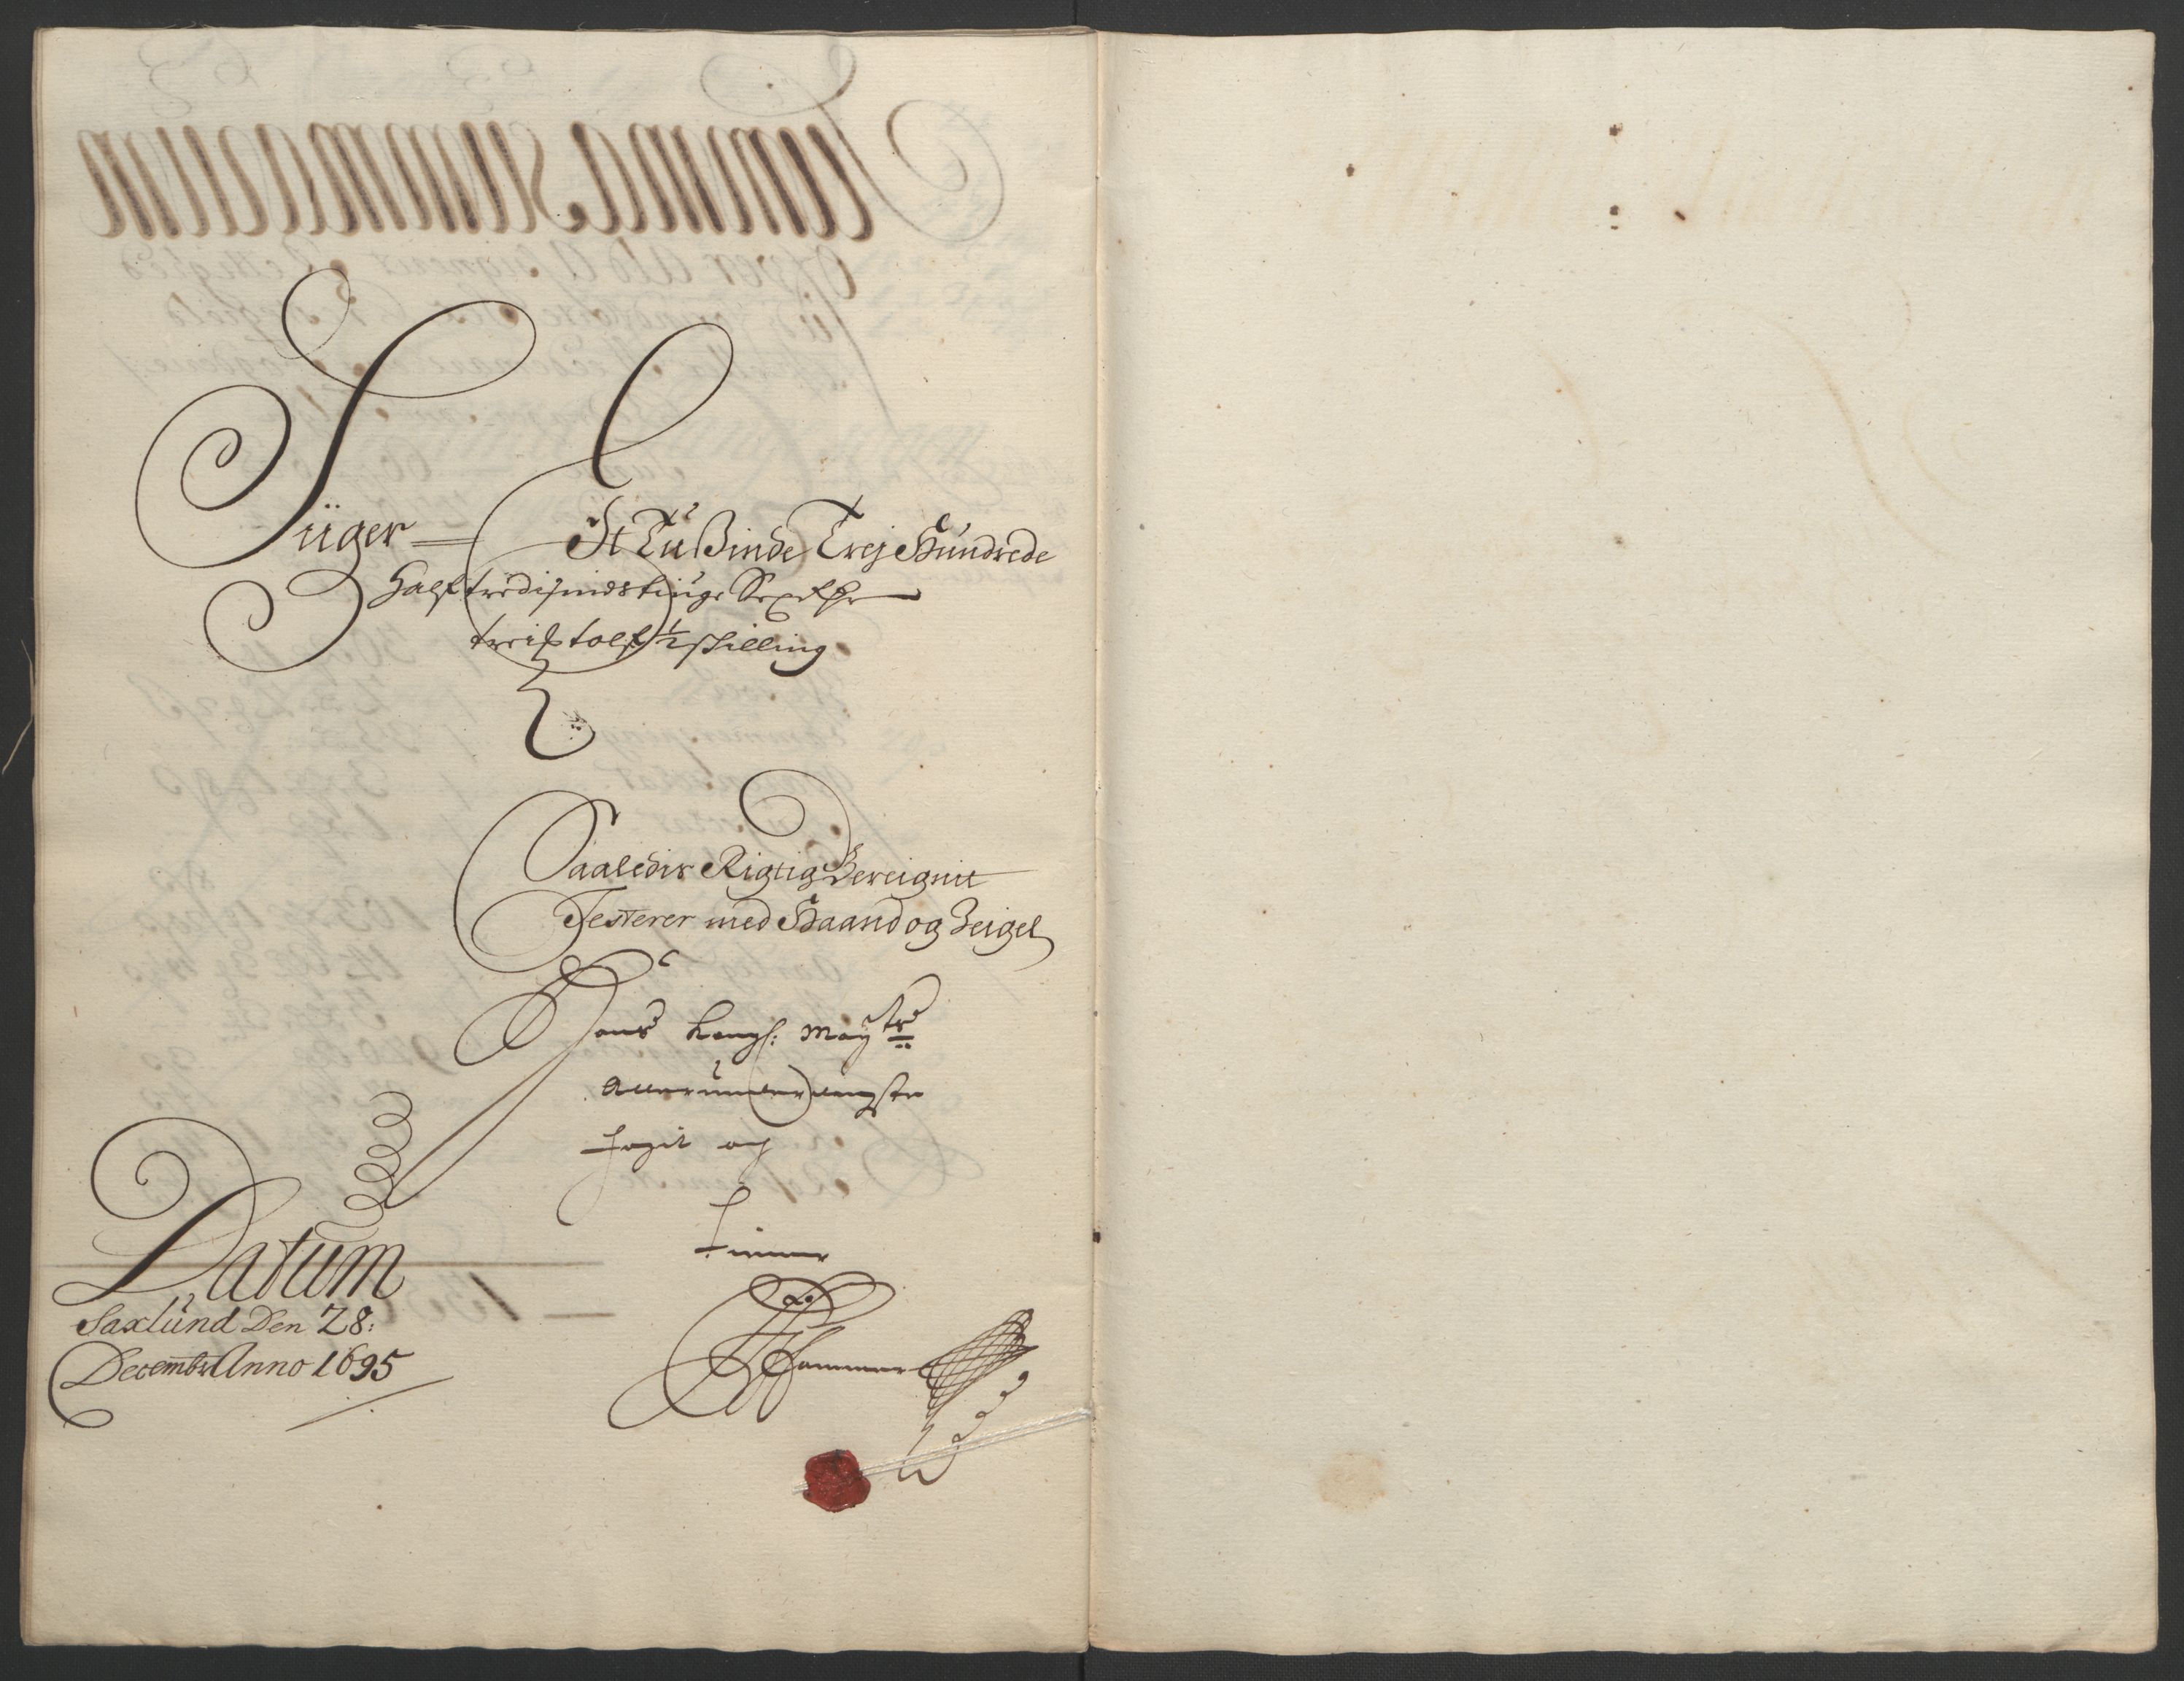 Siiger
Et Tußinde Trej Hundrede
Halftredisindstiuge Sex
treis tolf ½ skilling
Saaledis Rigtig Bereignit
Testerer med Haand og Zeigel
Hans kongl: Maytz
Allerunderdanigste
Fogit og
tiener
Hammer
Datum
Saxlund Den 28:
Decembr Anno 1695